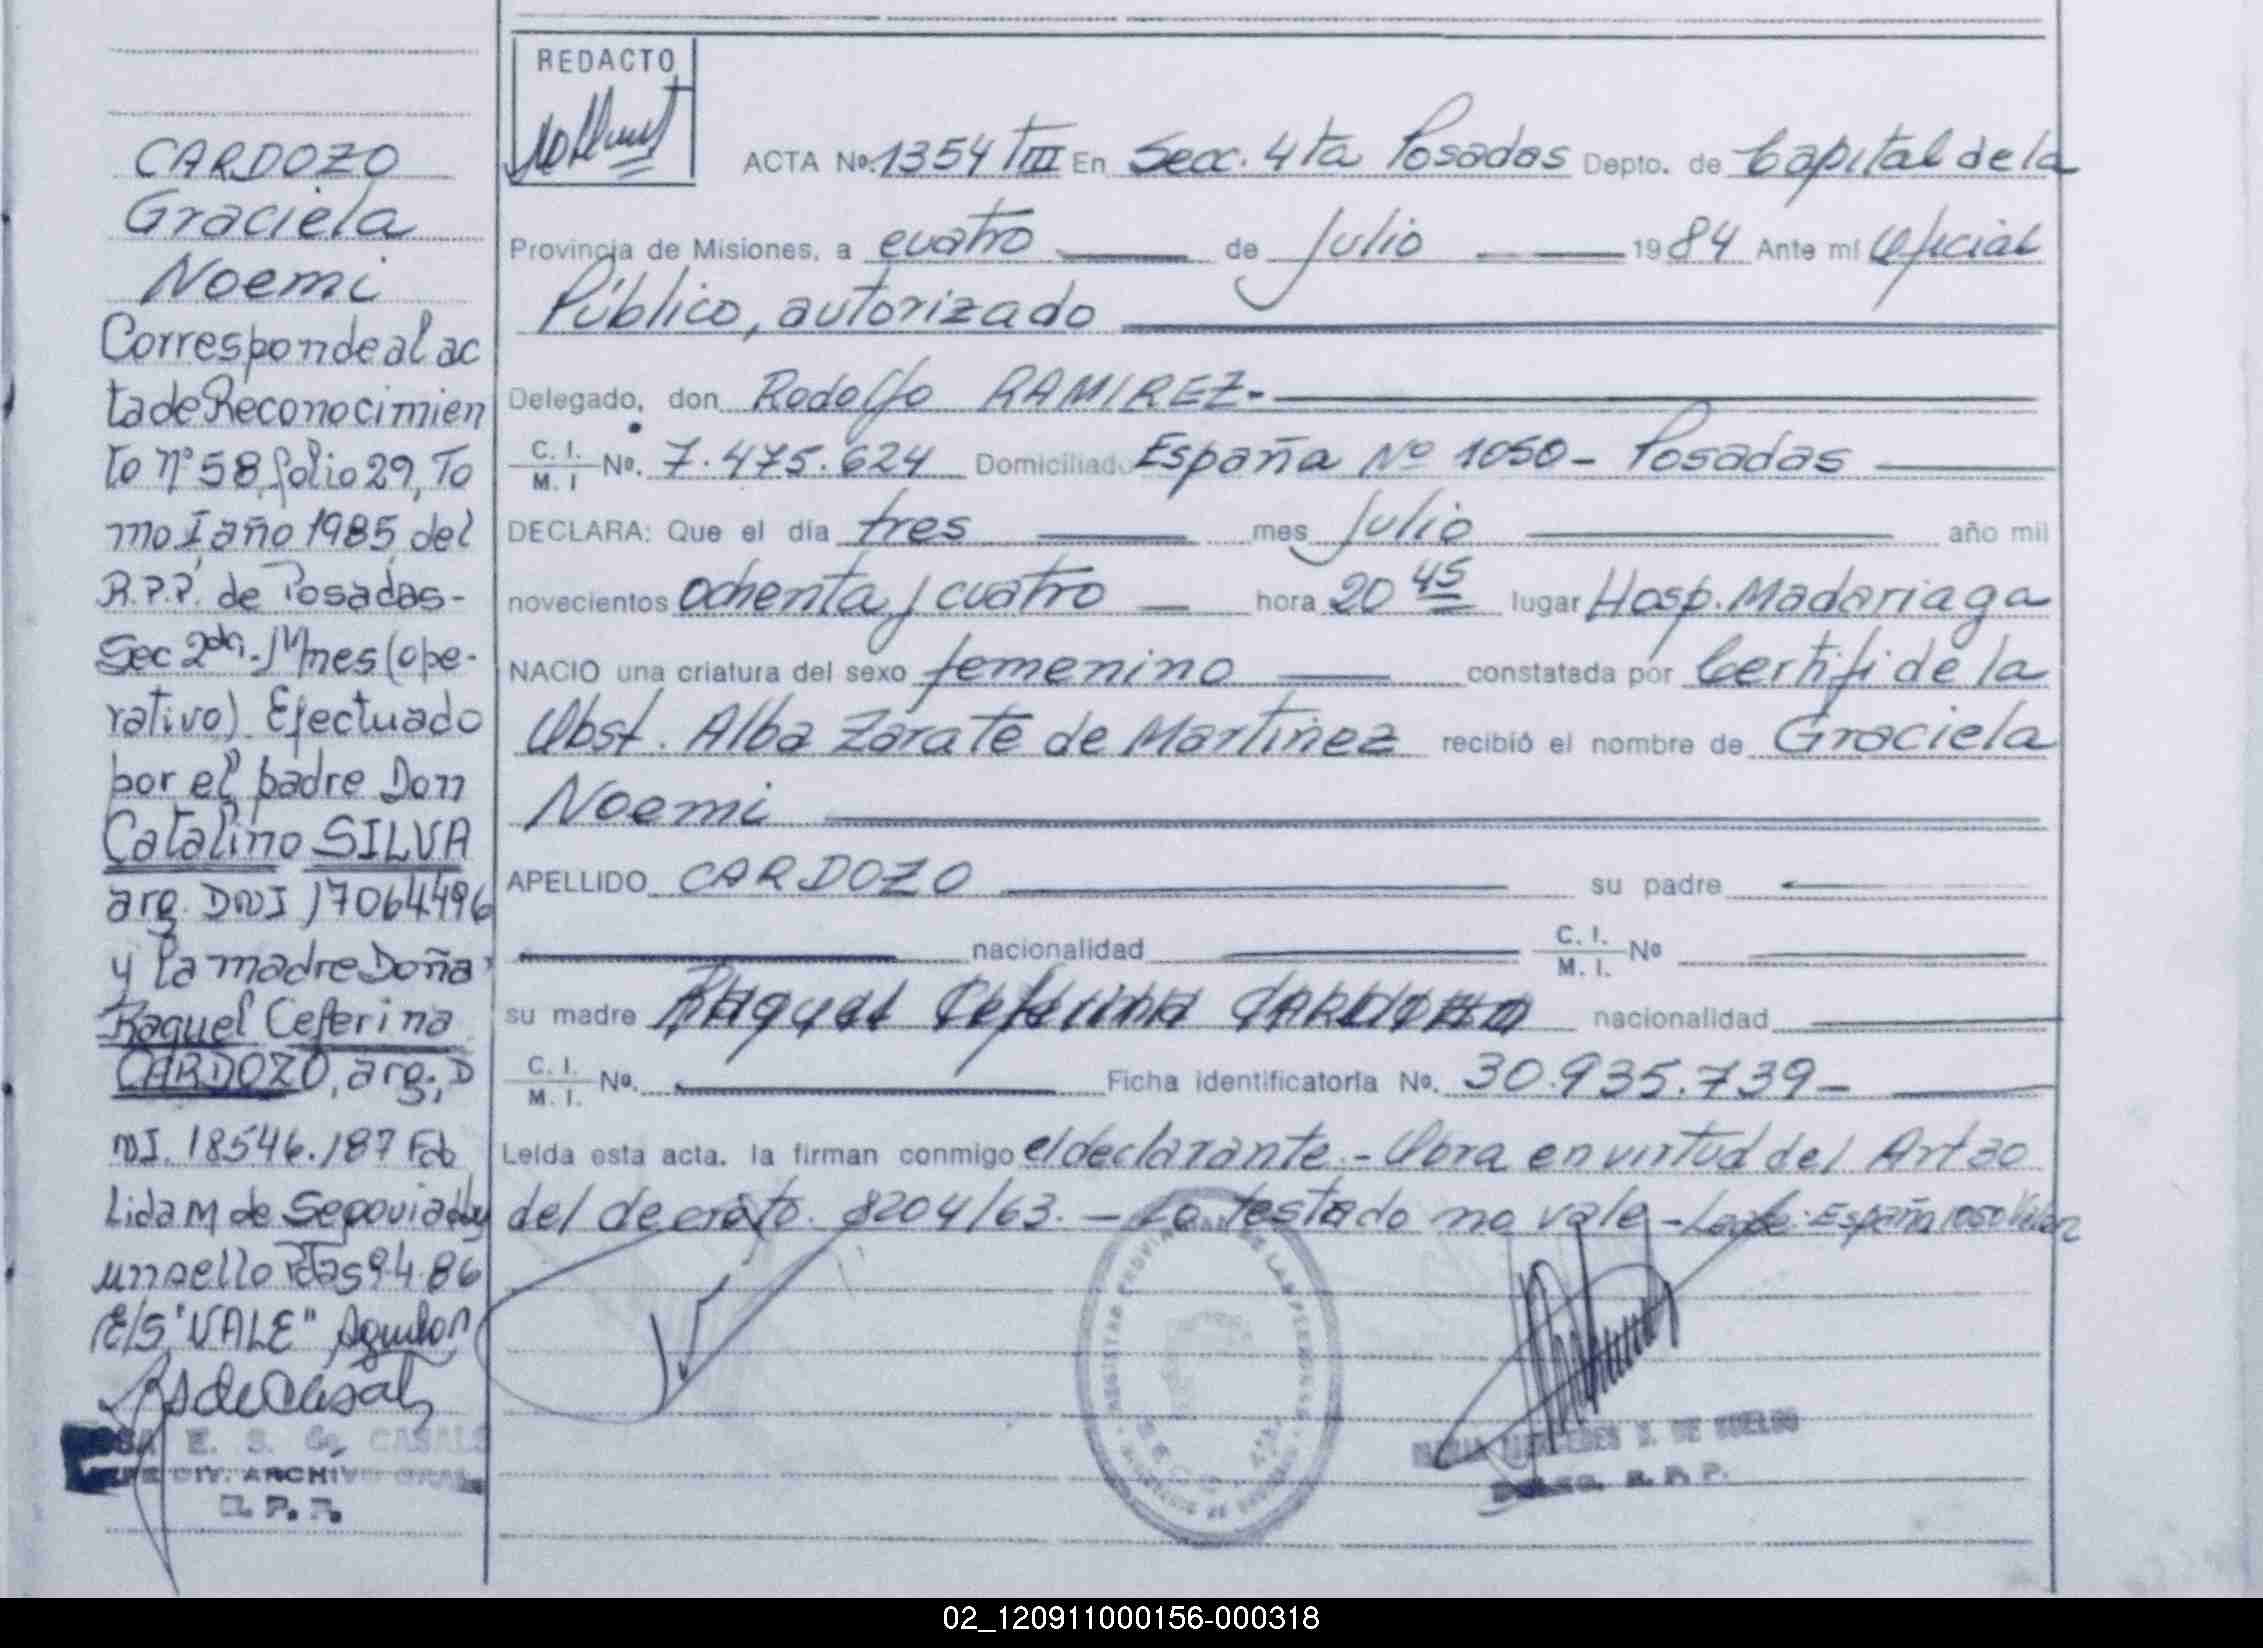 CARDOZO
Graciela
Noemi
Corresponde al ac
ta de Reconocimien
to nº 58, folio 29, To
mo I año 1985, del
R.P.P. de Posadas-
Sec 2da. Mnes (ope-
rativo). Efectuado
por el padre Don
Catalino SILVA
arg. DNI 17064496
y la madre Doña
Raquel Ceferina
CARDOZO, arg., D
NI. 18546.187 Fdo
Lida M de Segovia hay
un sello Pdas 9.4.86
E/S "VALE"
E. S. de CASALS
JEFE DIV. ARCHIVO GRAL
R. P. P.
REDACTO
ACTA No. 1354 TIII En Secc. 4ta Posadas Depto. de Capital de la
Provincia de Misiones, a cuatro de Julio 1984 Ante mí Oficial
Público, autorizado
Delegado, don Rodolfo RAMIREZ-
C. I. / M. I No. 7.475.624 Domiciliado España Nº 1050 - Posadas
DECLARA: Que el día tres mes Julio año mil
novecientos ochenta y cuatro hora 20 45 lugar Hosp. Madariaga
NACIO una criatura del sexo femenino constatada por Certifi de la
Obst. Alba Zarate de Martinez recibió el nombre de Graciela
Noemi
APELLIDO CARDOZO su padre
nacionalidad C. I. / M. I. No
su madre Raquel Ceferina CARDOZO nacionalidad
C. I. / M. I. No. Ficha identificatoria No. 30.935.739-
Leída esta acta. la firman conmigo el declarante - Obra en virtud del Art 20
del decreto. 8204/63. - Lo testado no vale - España 1050
REGISTRO PROVINCIAL DE LAS PERSONAS
DE SUELDO
R. P. P.
02_120911000156-000318